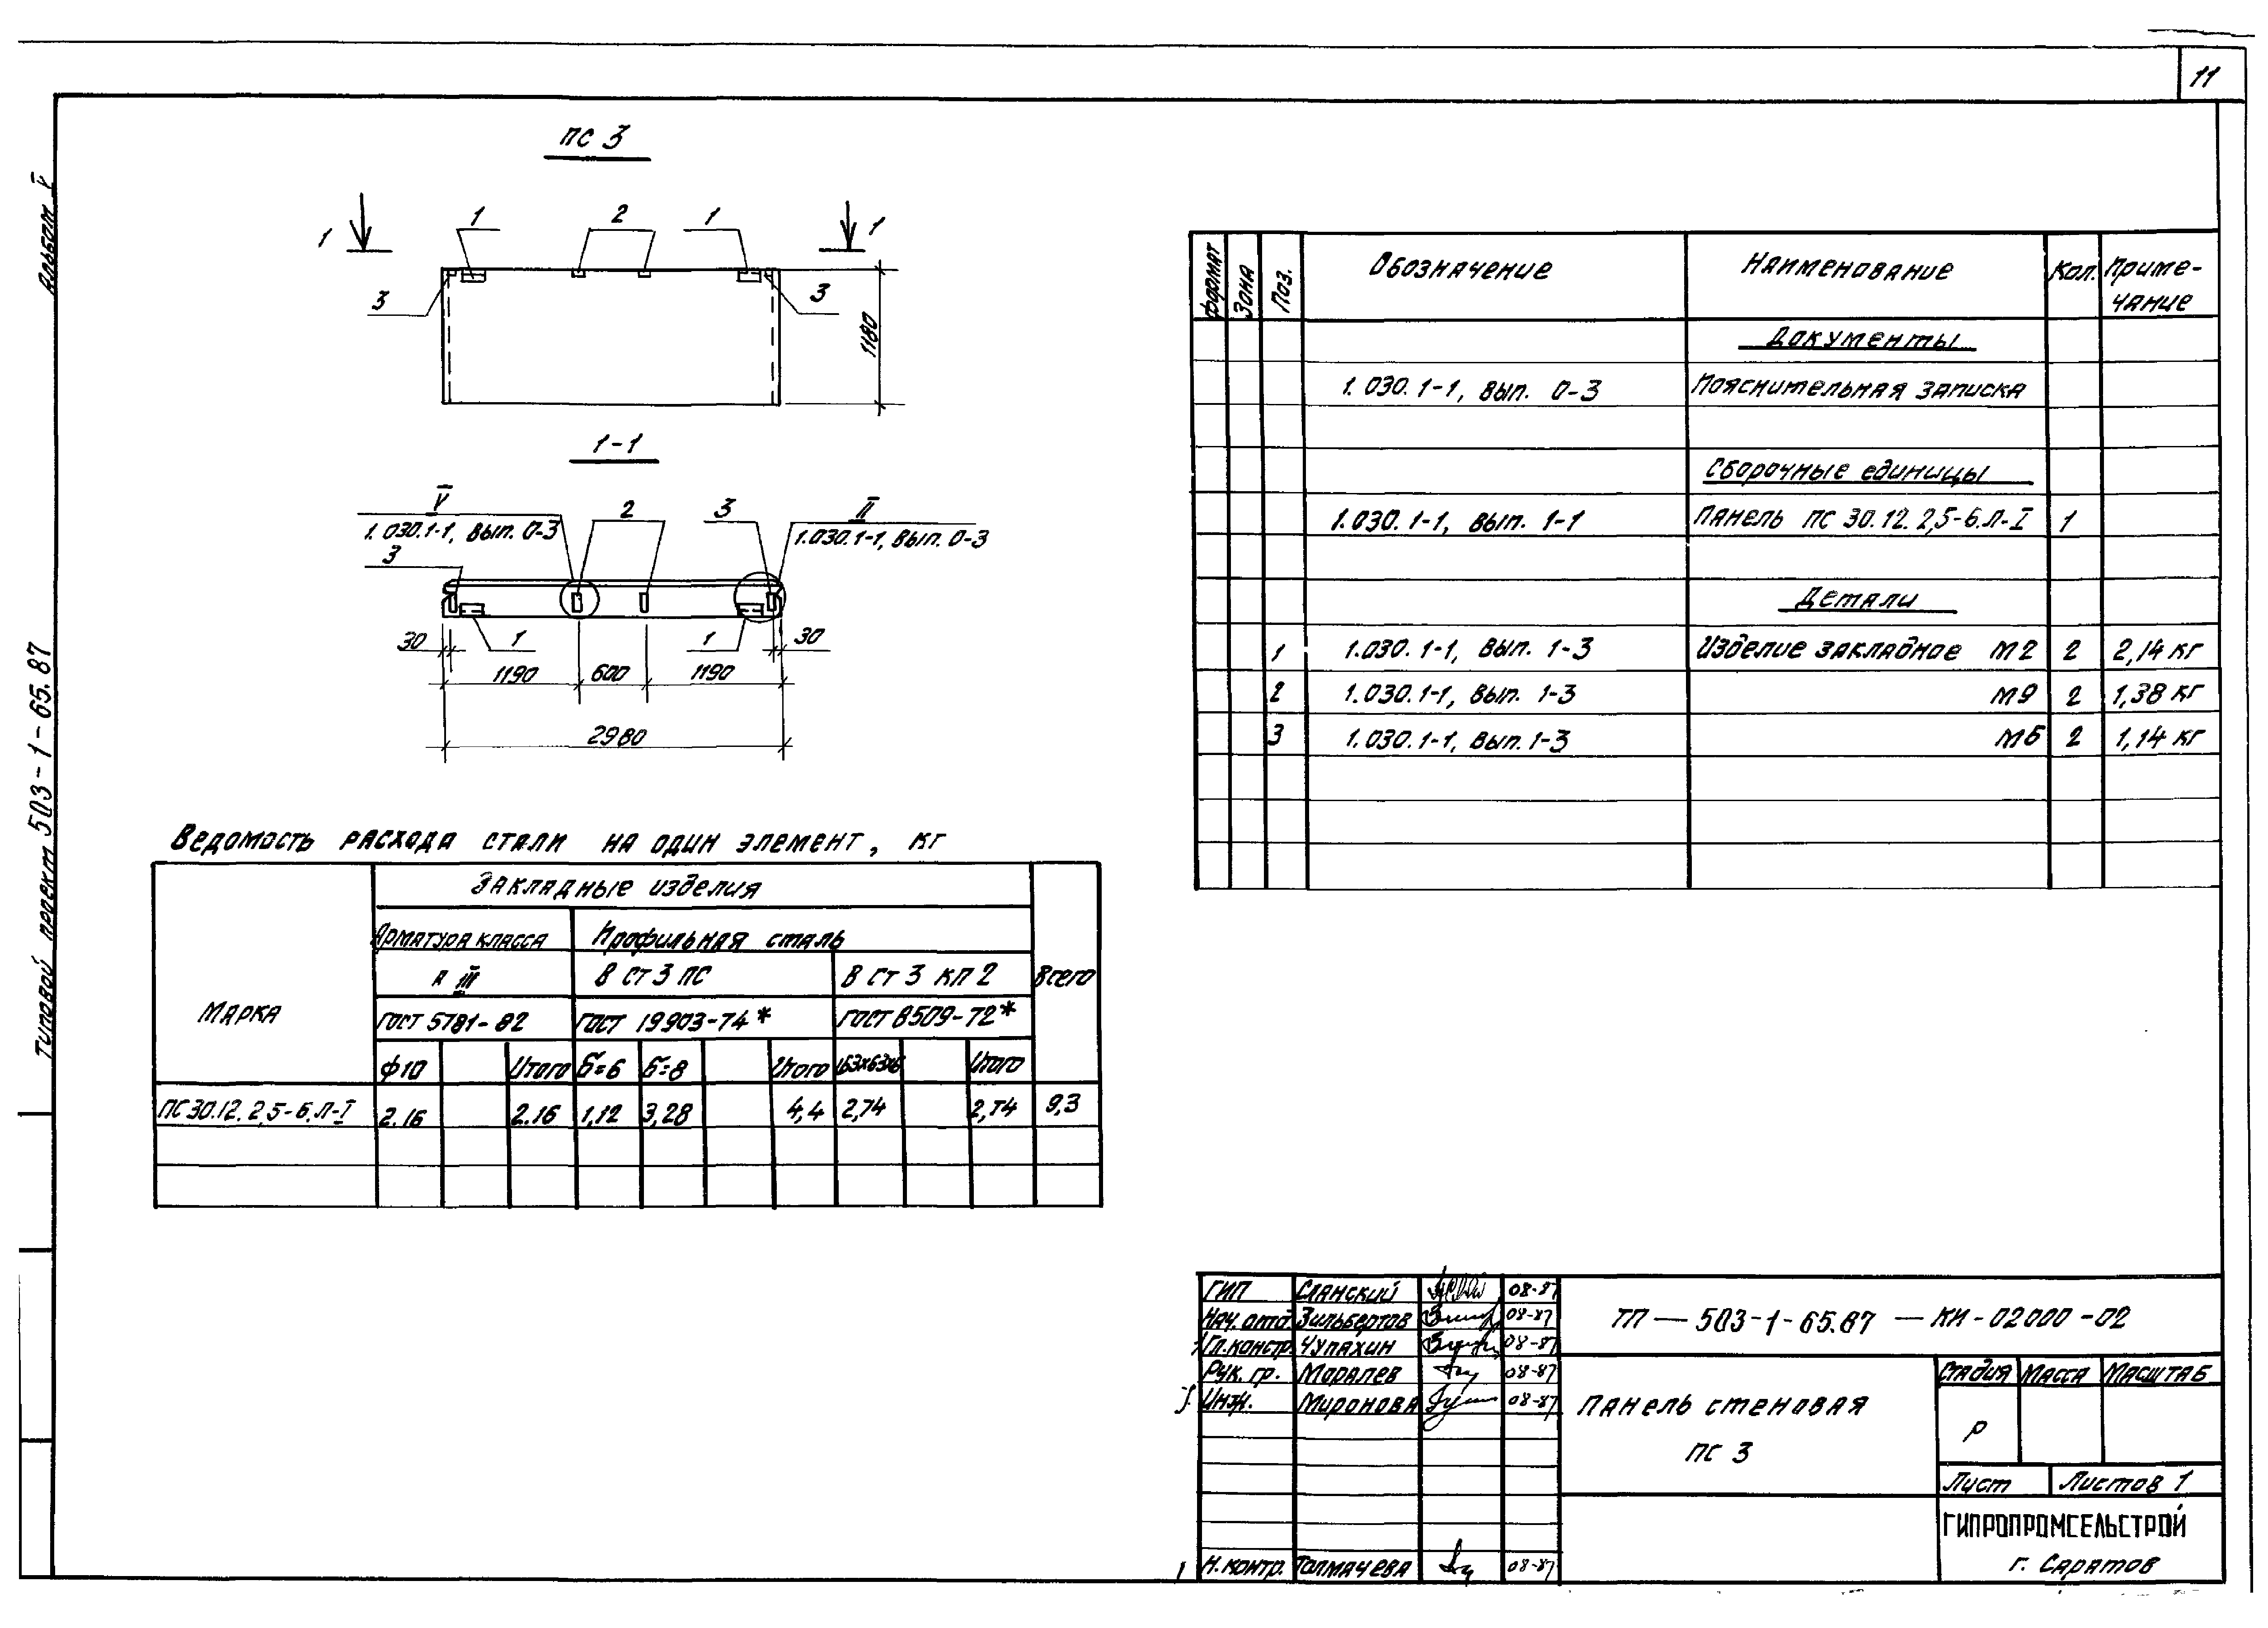 11
Альбом V
Типовой проект 503-1-65.87
ПС 3
1 1 2 1 1
3 3
1180
1-1
V 2 3 II
1.030.1-1, вып. 0-3 1.030.1-1, вып. 0-3
3
30 1 1 30
1190 600 1190
2980
Формат Зона Поз. Обозначение Наименование Кол. Приме-
чание
Документы
1.030.1-1, вып. 0-3 Пояснительная записка
Сборочные единицы
1.030.1-1, вып. 1-1 Панель ПС 30.12.2,5-6.Л-I 1
Детали
1 1.030.1-1, вып. 1-3 Изделие закладное М2 2 2,14 кг
2 1.030.1-1, вып. 1-3 М9 2 1,38 кг
3 1.030.1-1, вып. 1-3 М6 2 1,14 кг
Ведомость расхода стали на один элемент, кг
Марка Закладные изделия Всего
Арматура класса Профильная сталь
А III В Ст 3 ПС В Ст 3 кп 2
ГОСТ 5781-82 ГОСТ 19903-74* ГОСТ 8509-72*
Ф10 Итого Б=6 Б=8 Итого L63х63х6 Итого
ПС 30.12.2,5-6.Л-I 2.16 2.16 1,12 3,28 4,4 2,74 2,74 9,3
ГИП Сланский 08-87
Нач. отд. Зильбертов 08-87
Гл. констр. Чупахин 08-87
Рук. гр. Моралев 08-87
Инж. Миронова 08-87
Н. контр. Толмачева 08-87
ТП — 503-1-65.87 — КИ-02000-02
Панель стеновая
ПС 3
Стадия Масса Масштаб
Р
Лист Листов 1
ГИПРОПРОМСЕЛЬСТРОЙ
г. Саратов